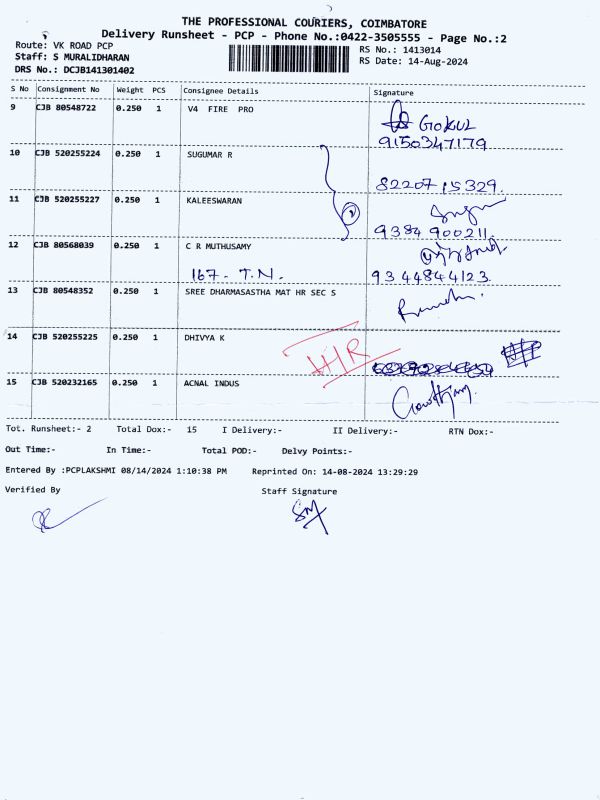 THE PROFESSIONAL COURIERS, COIMBATORE
Delivery Runsheet - PCP - Phone No.:0422-3505555 - Page No.:2
Route: VK ROAD PCP
Staff: S MURALIDHARAN
DRS No.: DCJB141301402
RS No.: 1413014
RS Date: 14-Aug-2024
S No Consignment No Weight PCS Consignee Details Signature
9 CJB 80548722 0.250 1 V4 FIRE PRO
GOKUL
9150347179
10 CJB 520255224 0.250 1 SUGUMAR R
82207 15329.
11 CJB 520255227 0.250 1 KALEESWARAN
9384 900211.
12 CJB 80568039 0.250 1 C R MUTHUSAMY
167 - T.N. 9344844123
13 CJB 80548352 0.250 1 SREE DHARMASASTHA MAT HR SEC S
14 CJB 520255225 0.250 1 DHIVYA K
15 CJB 520232165 0.250 1 ACNAL INDUS
Tot. Runsheet:- 2 Total Dox:- 15 I Delivery:- II Delivery:- RTN Dox:-
Out Time:- In Time:- Total POD:- Delvy Points:-
Entered By :PCPLAKSHMI 08/14/2024 1:10:38 PM Reprinted On: 14-08-2024 13:29:29
Verified By Staff Signature
SM